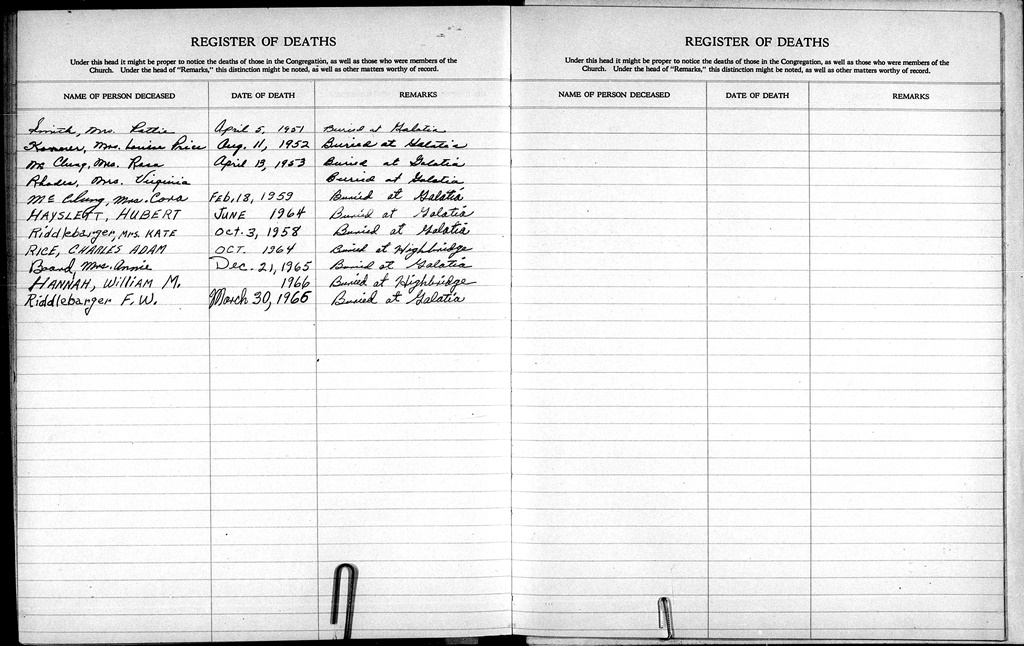 REGISTER OF DEATHS
Under this head it might be proper to notice the deaths of those in the Congregation, as well as those who were members of the
Church. Under the head of "Remarks," this distinction might be noted, as well as other matters worthy of record.
NAME OF PERSON DECEASED DATE OF DEATH REMARKS
Smith, Mrs. April 5, 1951 Buried at Galatia
Mrs. Louise Price Aug. 11, 1952 Buried at Galatia
Mc Clung, Mrs. Rosa April 13, 1953 Buried at Galatia
Rhodes, Mrs. Virginia Buried at Galatia
Mc Clung, Mrs. Cora Feb, 18, 1959 Buried at Galatia
HAYSLETT, HUBERT JUNE 1964 Buried at Galatia
Riddlebarger, Mrs. KATE Oct. 3, 1958 Buried at Galatia
RICE, CHARLES ADAM OCT. 1964 Buried at Highbridge
Board, Mrs. Annie Dec. 21, 1965 Buried at Galatia
HANNAH, William M. 1966 Buried at Highbridge
Riddlebarger F. W. March 30, Buried at Galatia
REGISTER OF DEATHS
Under this head it might be proper to notice the deaths of those in the Congregation, as well as those who were members of the
Church. Under the head of "Remarks," this distinction might be noted, as well as other matters worthy of record.
NAME OF PERSON DECEASED DATE OF DEATH REMARKS